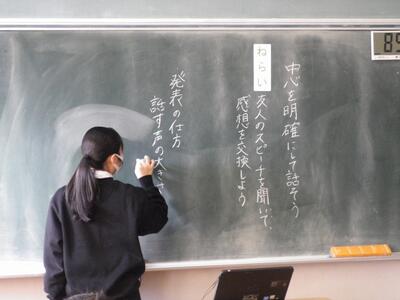 中心を明確にして話そう
ねらい
友人のスピーチを聞いて、
感想を交換しよう
発表の仕方
話す声の大きさ
89